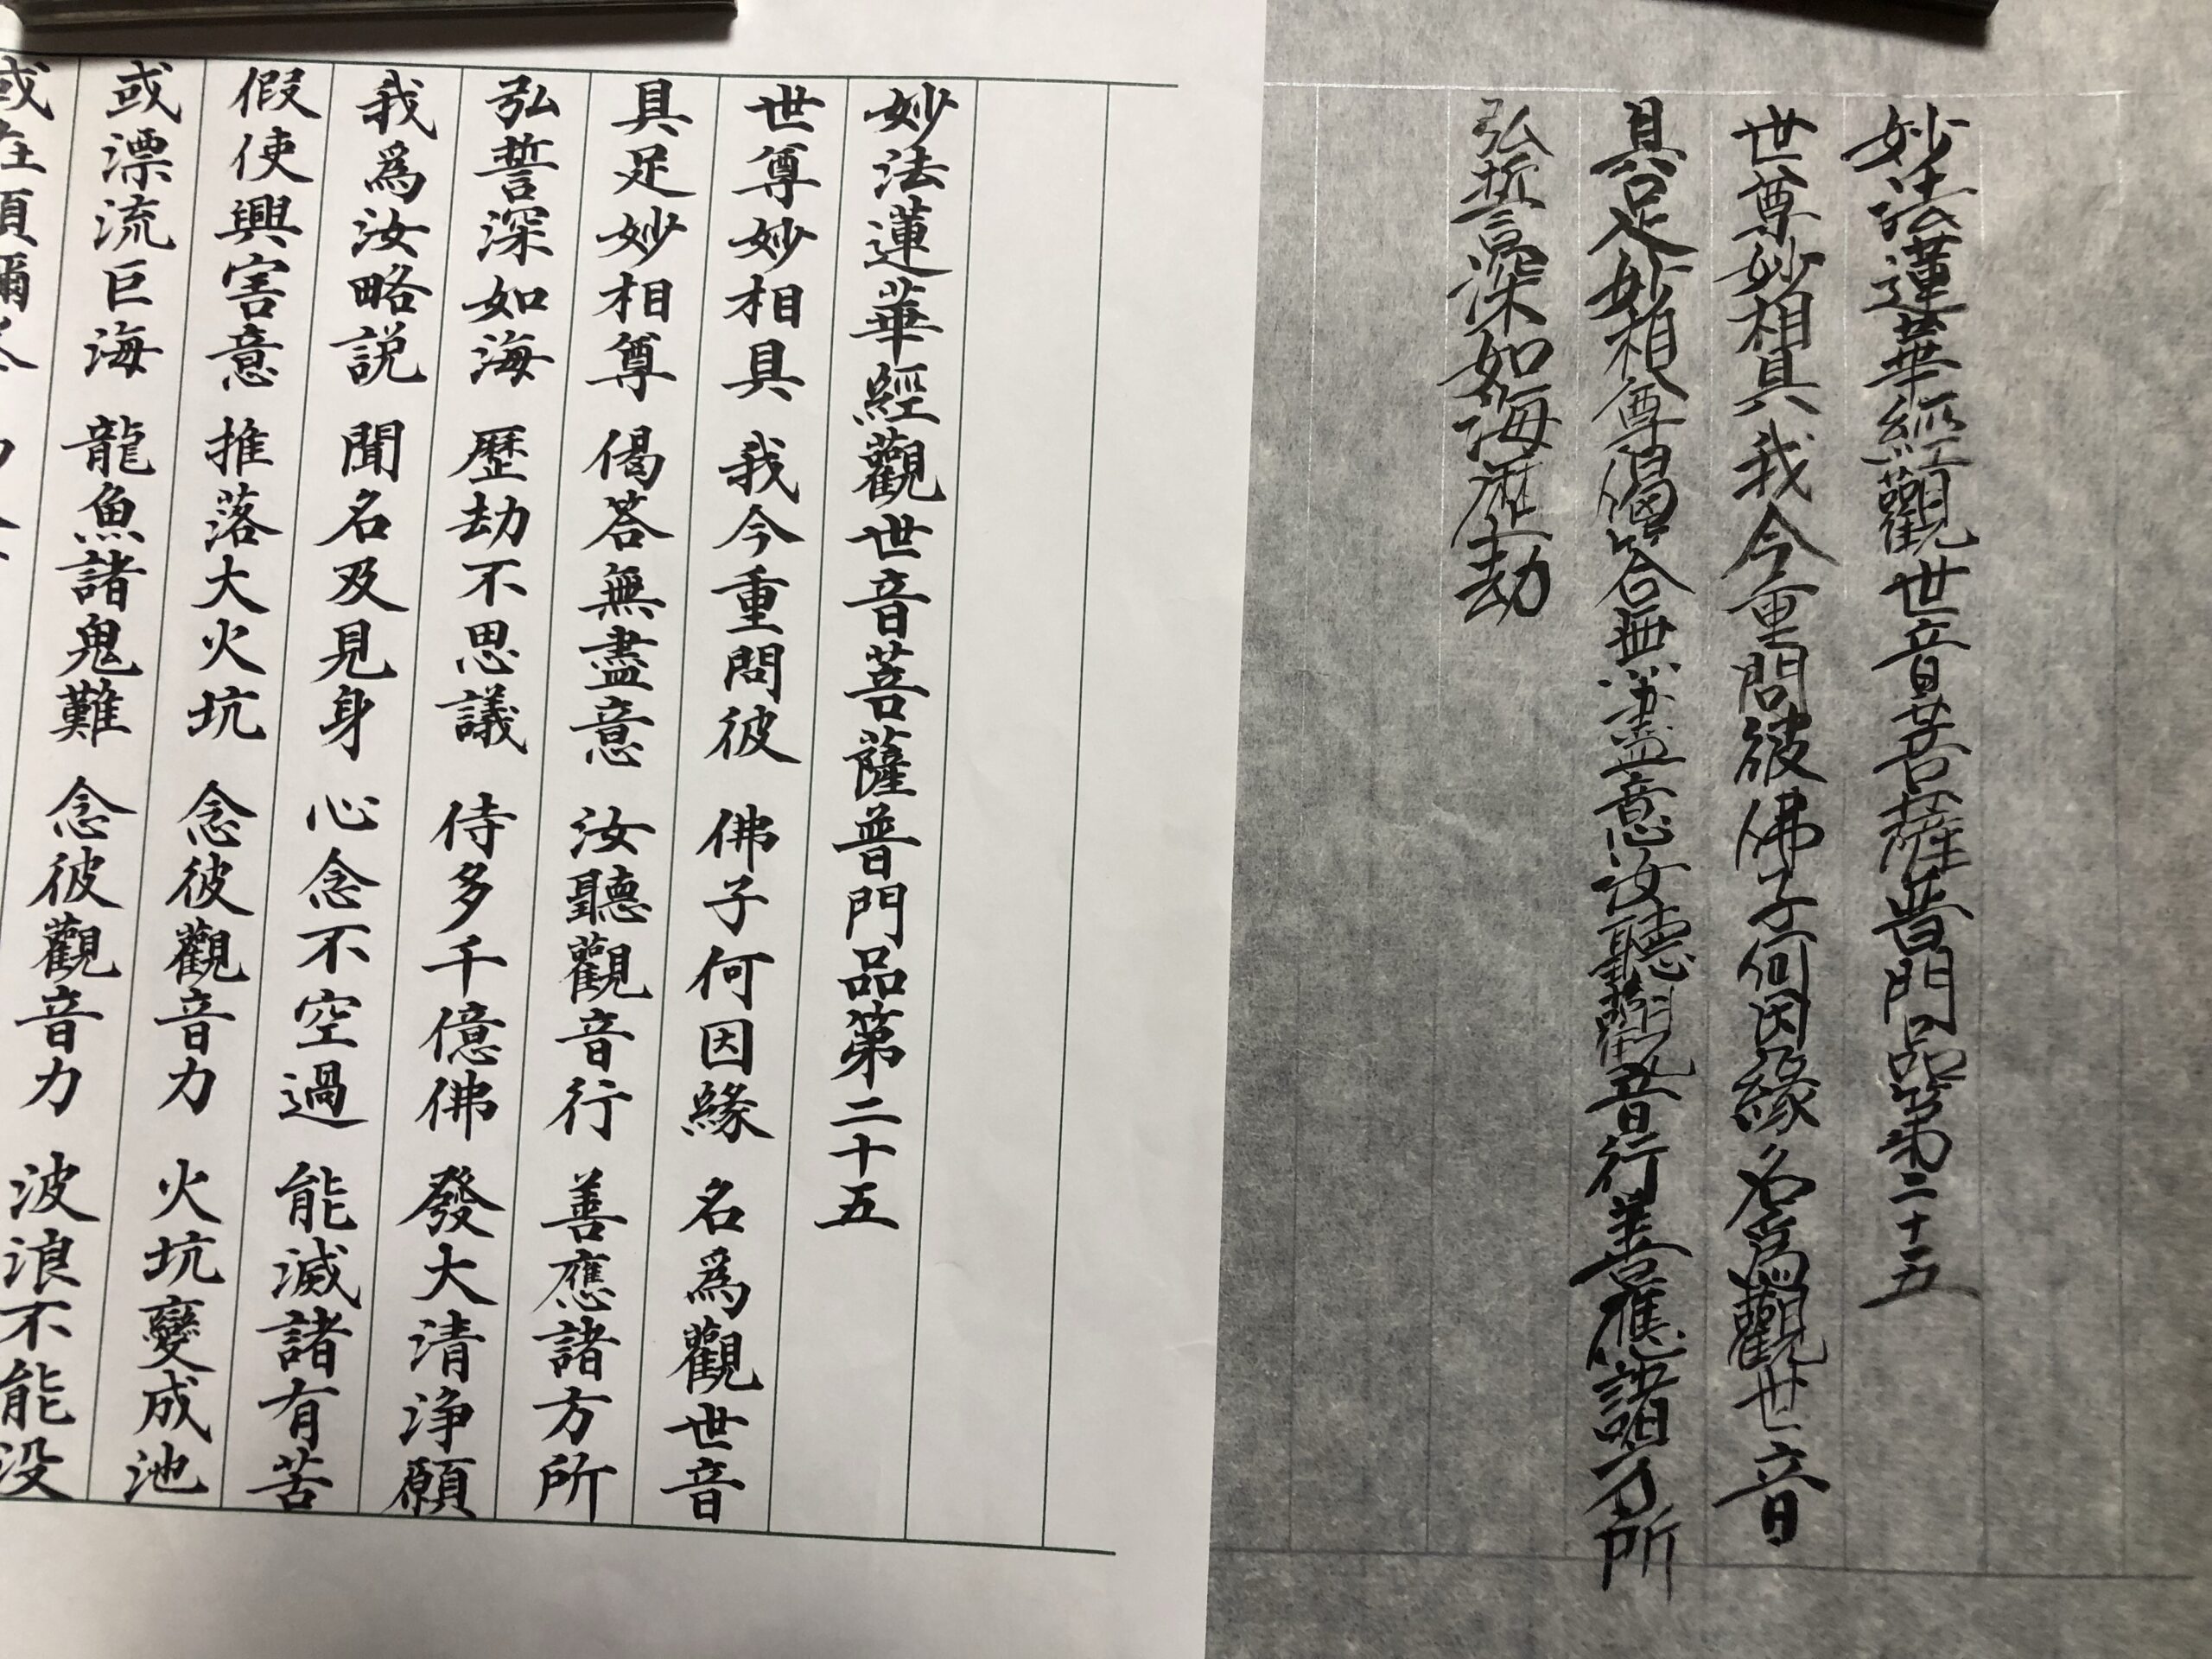 妙法蓮華經觀世音菩薩普門品第二十五
世尊妙相具我今重問彼佛子何因緣名爲觀世音
具足妙相尊偈答無盡意汝聽觀音行善應諸方所
弘誓深如海歷劫
妙法蓮華經觀世音菩薩普門品第二十五
世尊妙相具 我今重問彼 佛子何因緣 名爲觀世音
具足妙相尊 偈荅無盡意 汝聽觀音行 善應諸方所
弘誓深如海 歷劫不思議 侍多千億佛 發大清浄願
我爲汝略説 聞名及見身 心念不空過 能滅諸有苦
假使興害意 推落大火坑 念彼觀音力 火坑變成池
或漂流巨海 龍魚諸鬼難 念彼觀音力 波浪不能没
或在須彌